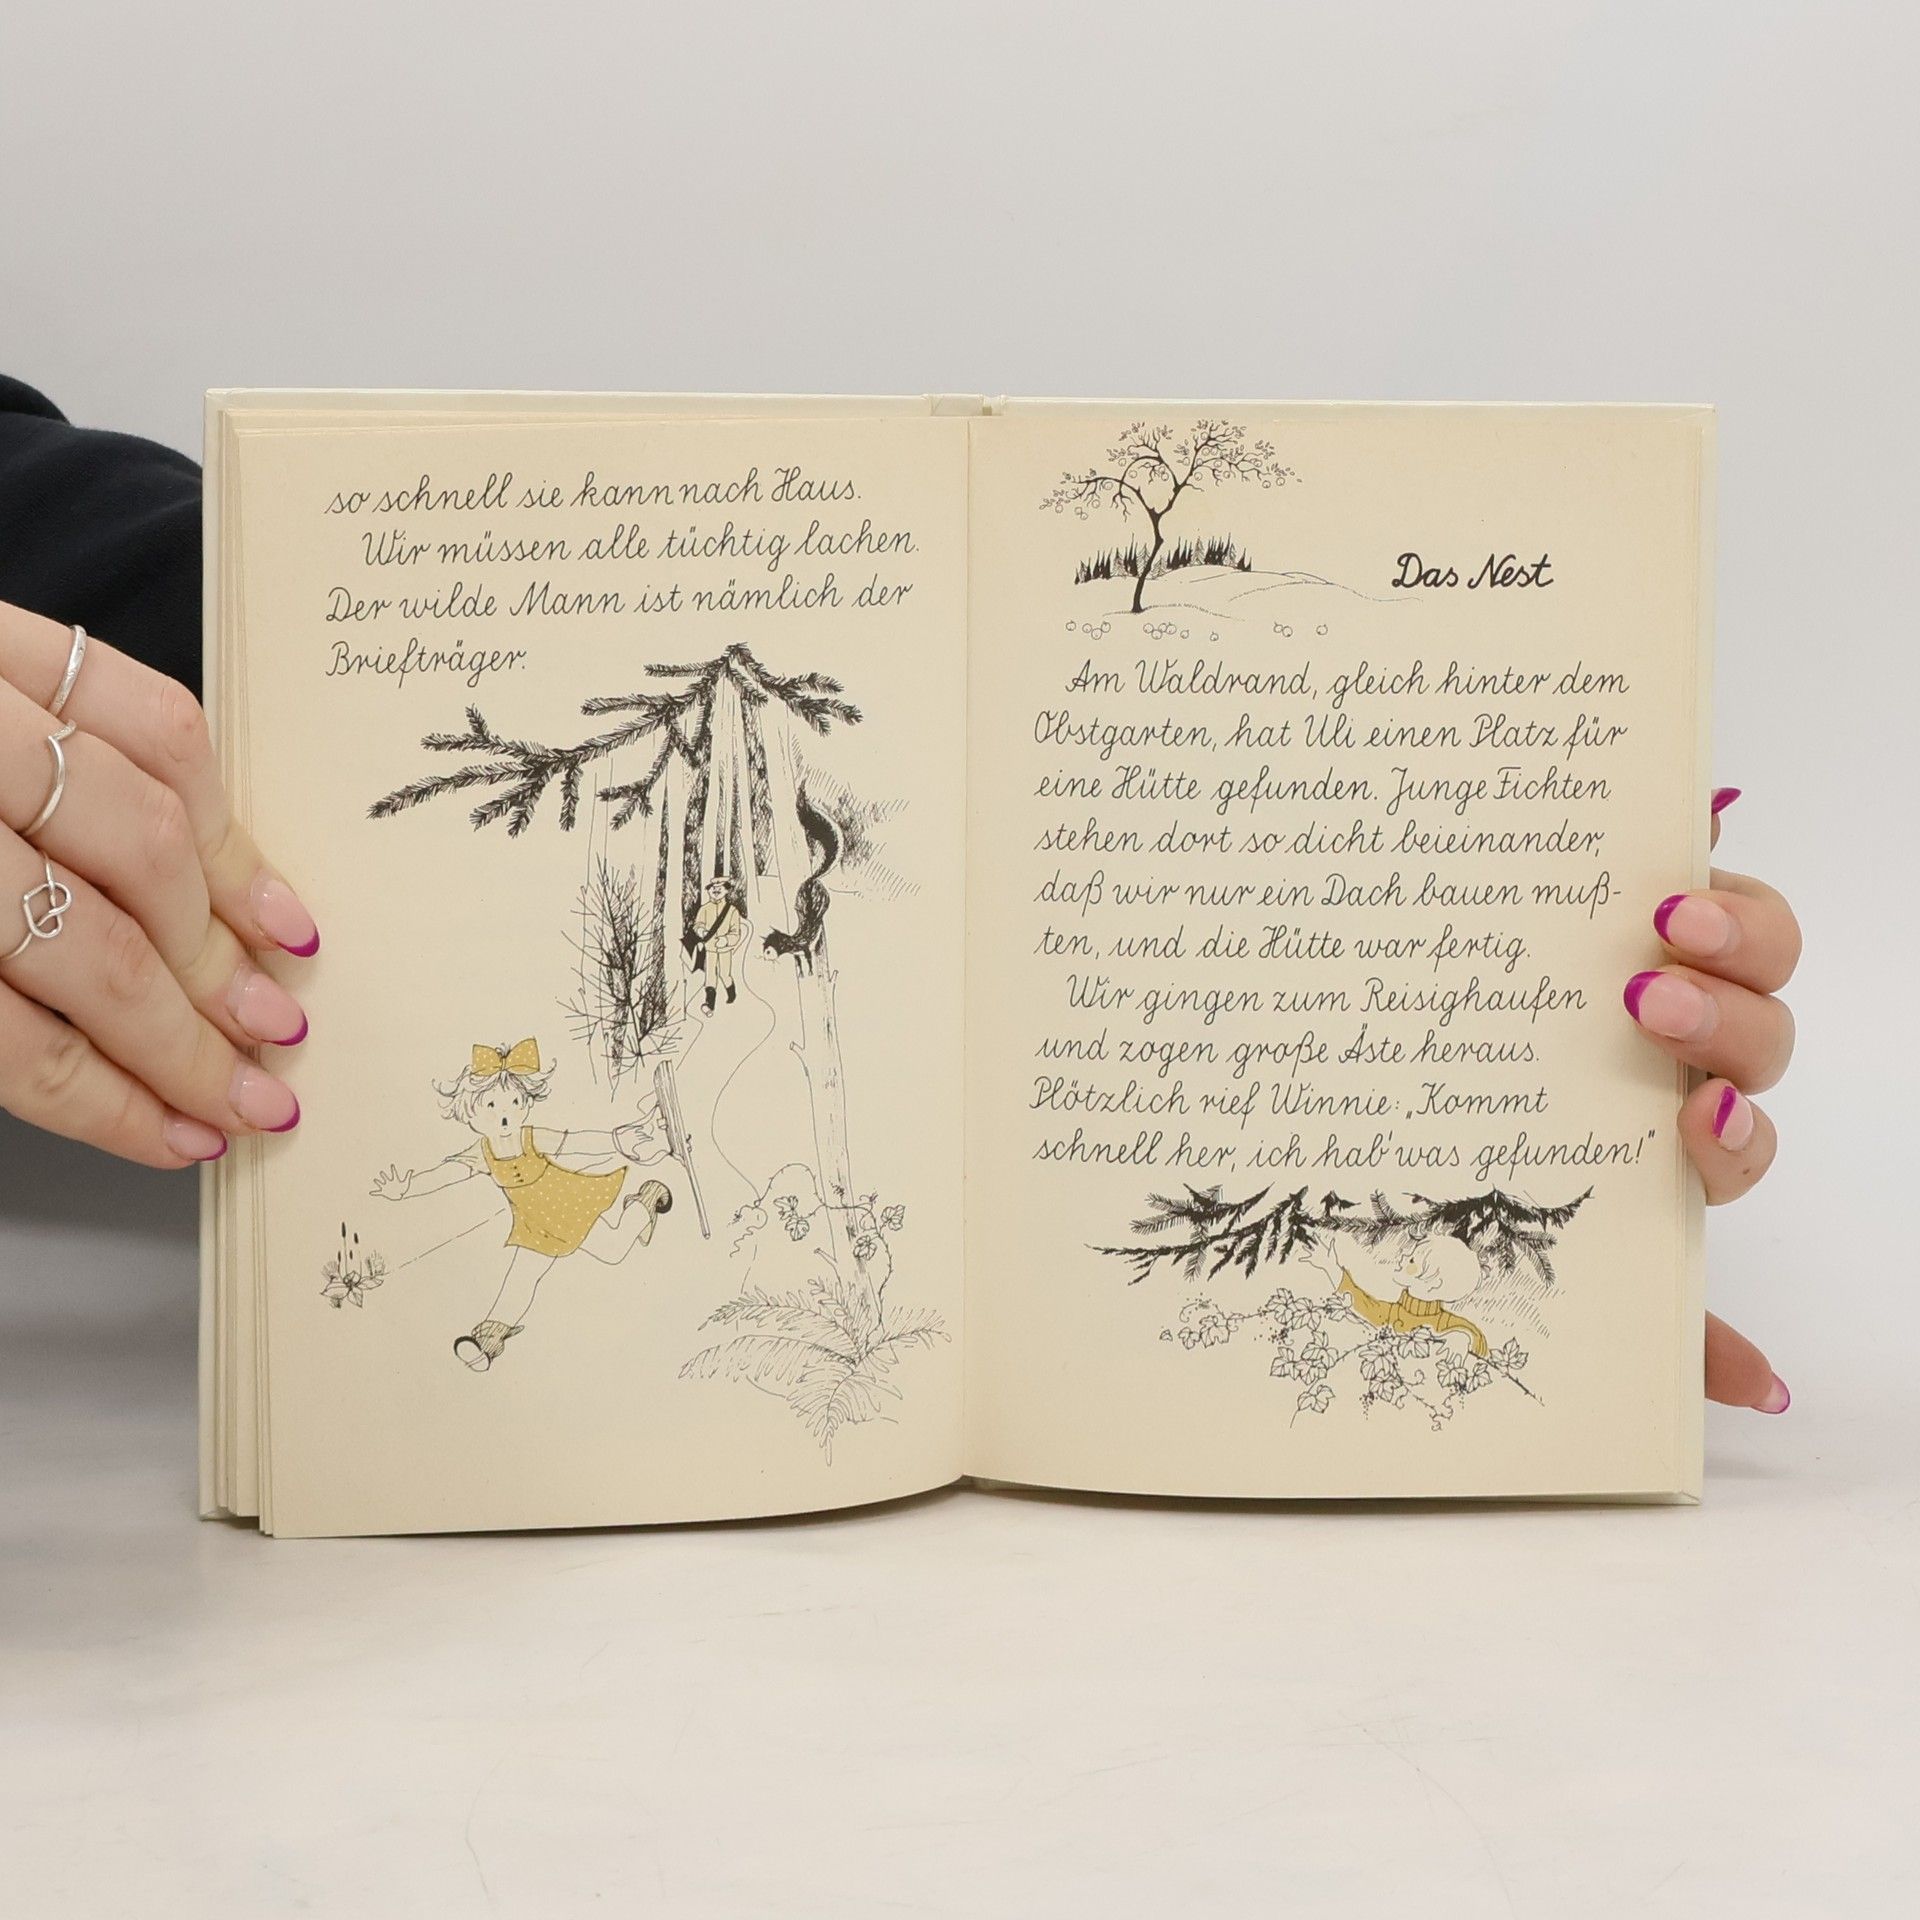 so schnell sie kann nach Haus.
Wir müssen alle tüchtig lachen.
Der wilde Mann ist nämlich der
Briefträger.
Das Nest
Am Waldrand, gleich hinter dem
Obstgarten, hat Uli einen Platz für
eine Hütte gefunden. Junge Fichten
stehen dort so dicht beieinander,
daß wir nur ein Dach bauen muß-
ten, und die Hütte war fertig.
Wir gingen zum Reisighaufen
und zogen große Äste heraus.
Plötzlich rief Winnie: „Kommt
schnell her, ich hab' was gefunden!"